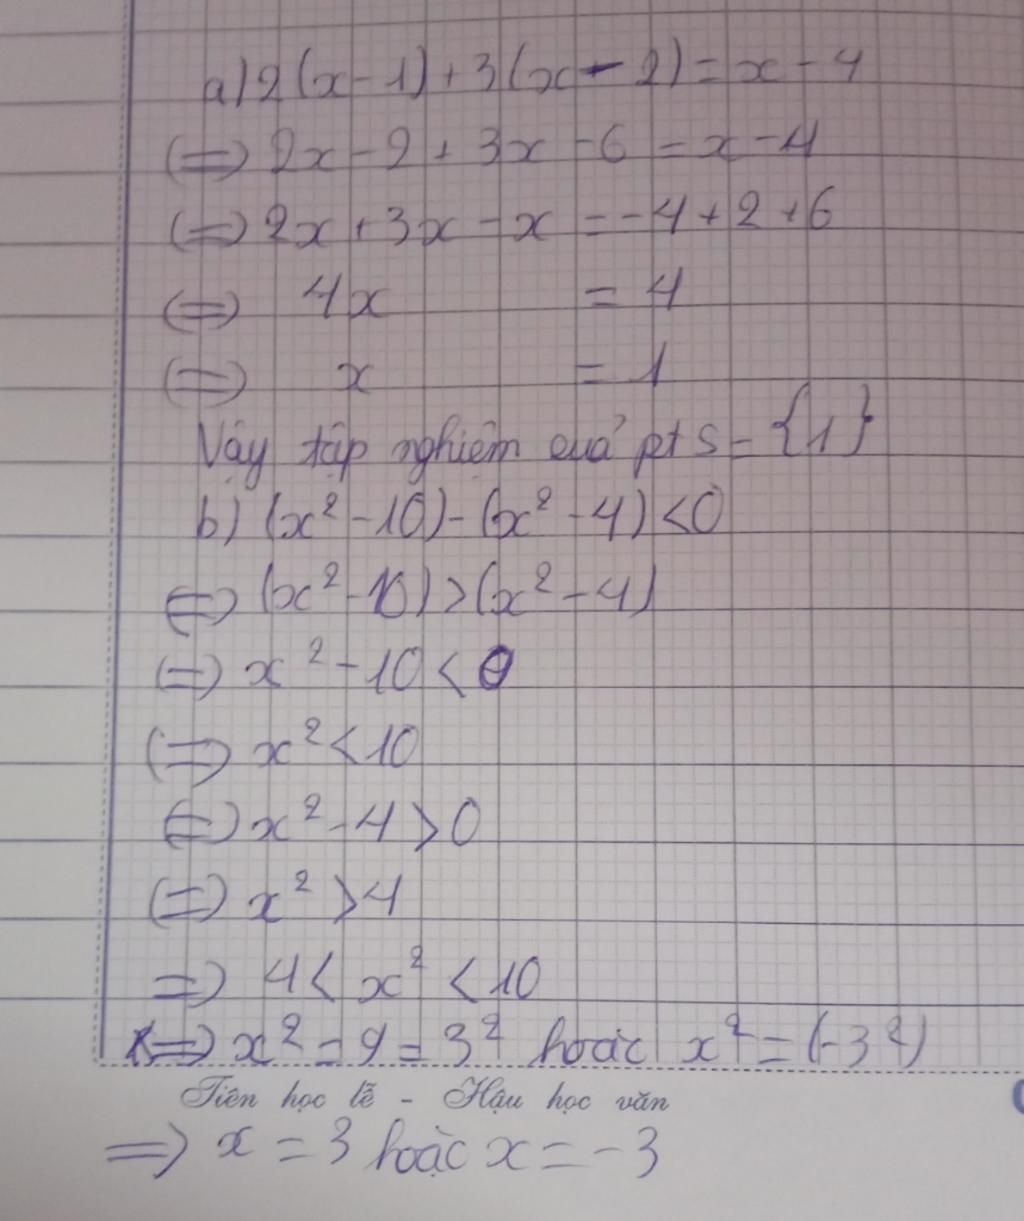 a) 2(x-1)+3(x-2)=x-4
(=) 2x-2+3x-6=x-4
(=) 2x+3x-x=-4+2+6
(=) 4x = 4
(=) x = 1
Vậy tập nghiệm cuả pt S={1}
b) (x²-10)-(x²-4)<0
(=) (x²-10)>(x²-4)
(=) x²-10<0
(=) x²<10
(=) x²-4>0
(=) x²>4
=) 4<x²<10
(=) x²=9=3² hoặc x²=(-3²)
Tiên học lễ - Hậu học văn
=) x=3 hoặc x=-3